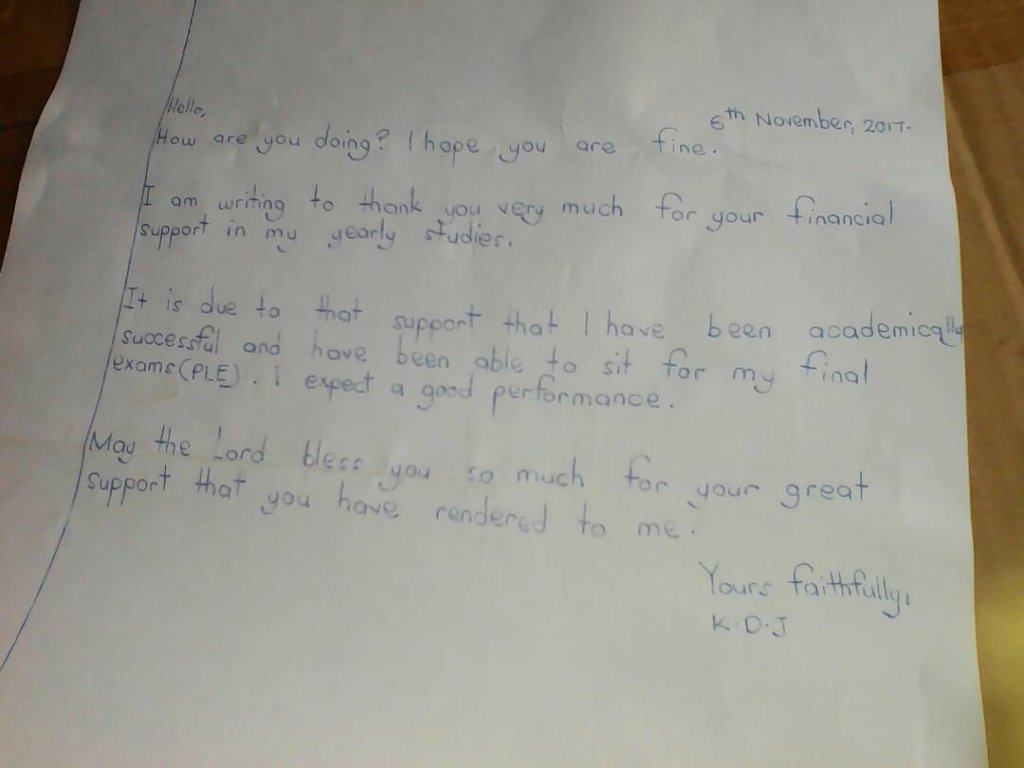 Hello,
6th November, 2017.
How are you doing? I hope you are fine.
I am writing to thank you very much for your financial
support in my yearly studies.
It is due to that support that I have been academically
successful and have been able to sit for my final
exams (PLE). i expect a good performance.
May the Lord bless you so much for your great
support that you have rendered to me.
Yours faithfully,
K.D.J